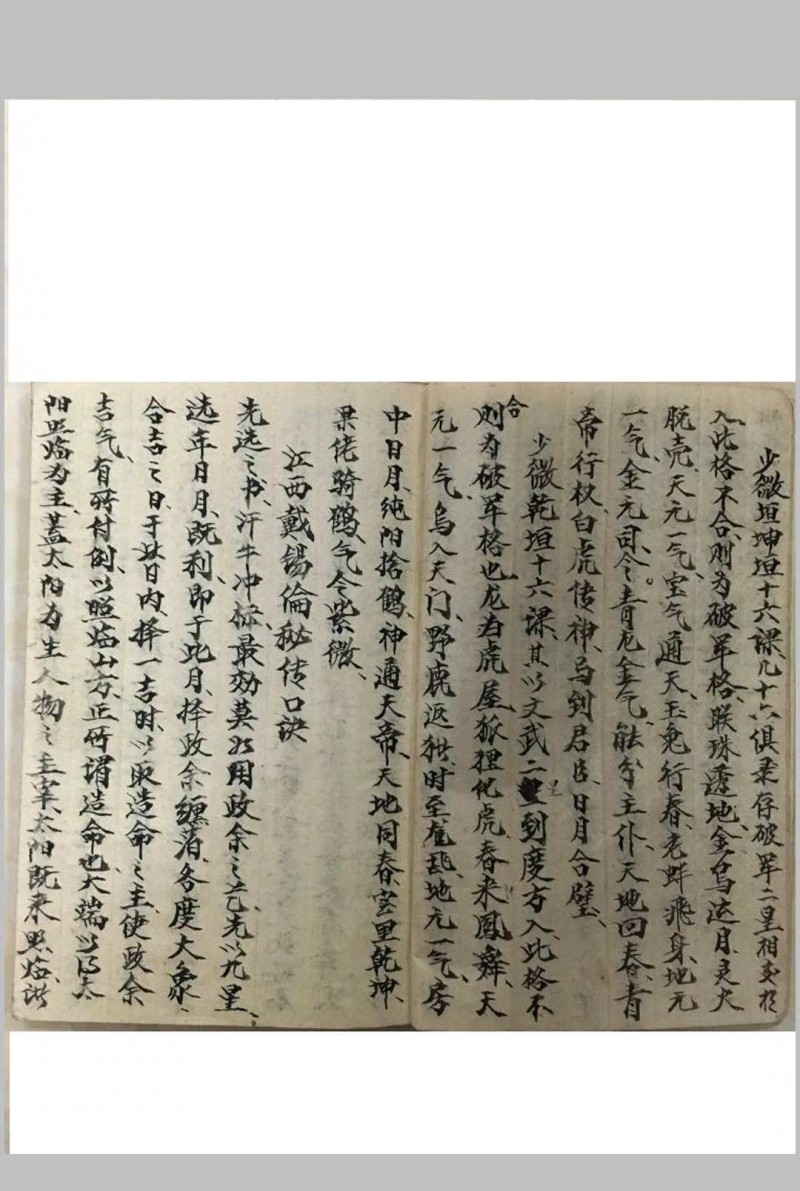 少微垣坤垣十六课、凡十六俱录存破军二星相交於
入此格不合、则为破军格、联珠透地、金乌达月、灵犬
脱壳、天元一气、宝气通天、玉兔行春、老蚌飛身、地元
一气、金元司令。青龙金气、能分主仆、天地回春、青
帝行权、白虎传神、马到君臣、日月合璧、
少微乾垣十六课、其以文武二星到度方入此格不
合则为破军格也、龙为虎屋、狐狸化虎、春来凤舞、天
元一气、乌入天门、野鹿返、时至、地元一气、房
中日月、纯阳捨鹤、神通天帝、天地同春、室里乾坤、
果佬骑鹤、气令紫微、
江西戴锡倫秘传口诀
先选之书、汗牛冲栋、最効莫如用政余之艺、先以九星、
选年日月、既利、即于此月、择政余缠落、各度大象、
合吉之日、于此日内、择一吉时、以取造命之主、使政余
吉气、有所付倒、以照临山方、正所谓造命也、大端以得太
阳照临为主、盖太阳为生人物之主宰、太阳既来照临、諸